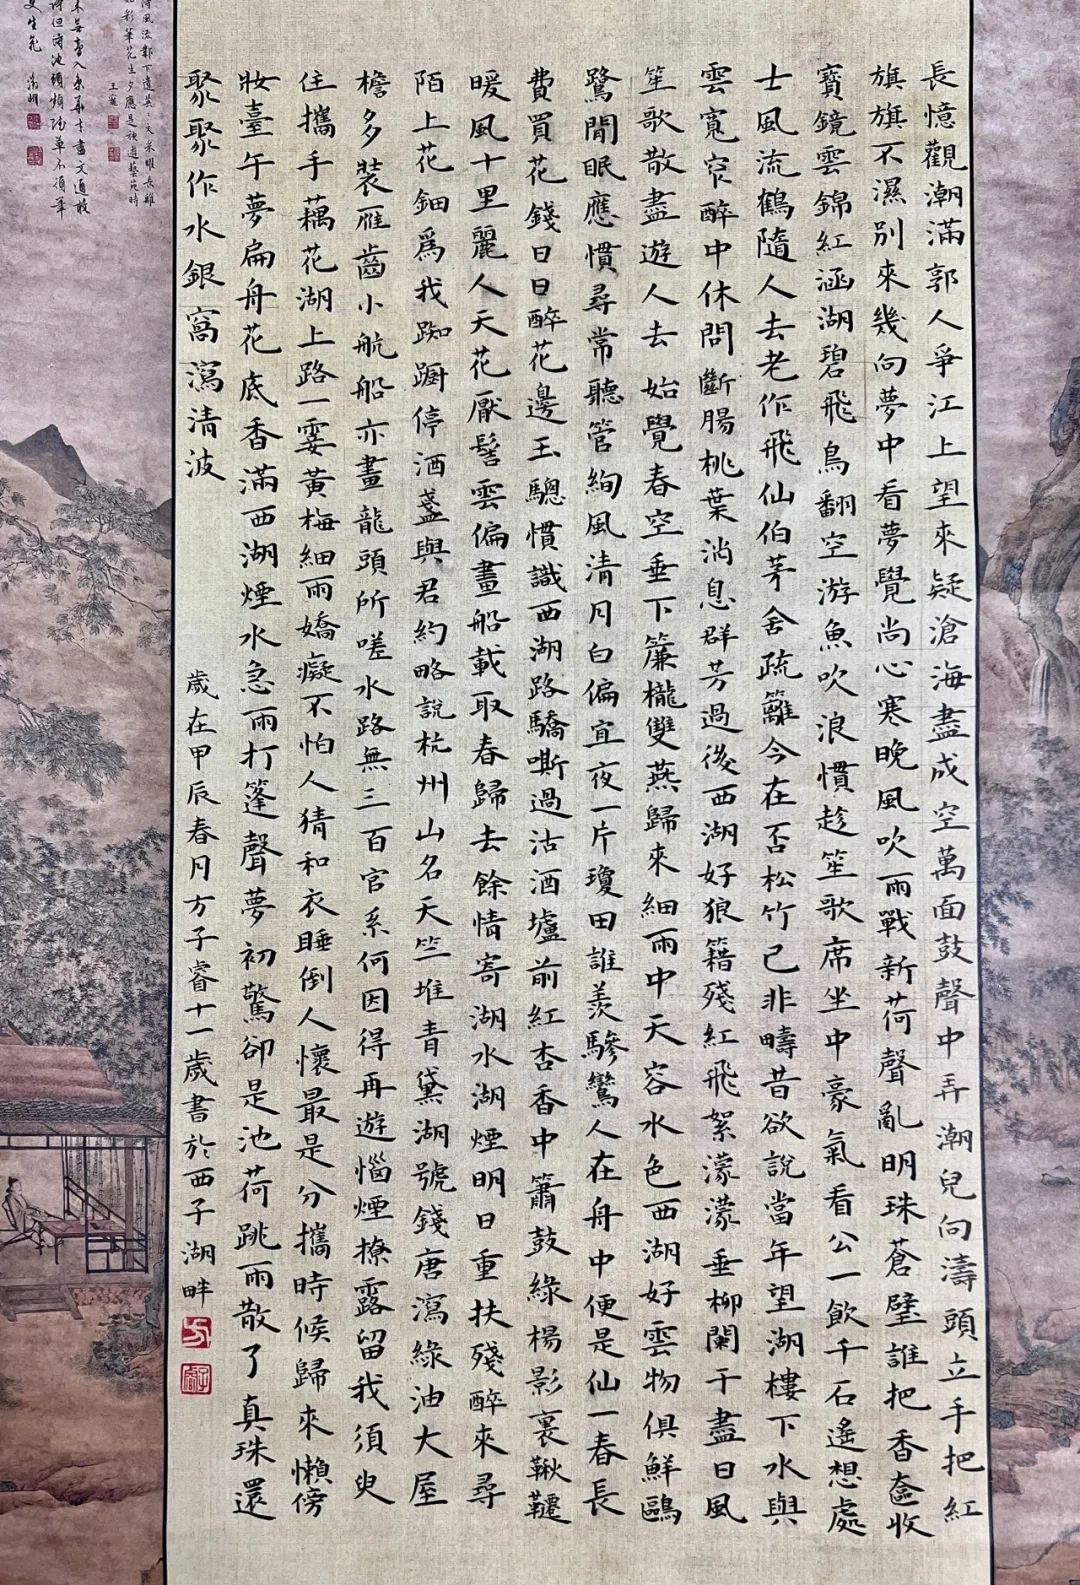 長憶觀潮滿郭人爭江上望來疑滄海盡成空萬面鼓聲中弄潮兒向濤頭立手把紅
旗旗不濕別來幾向夢中看夢覺尚心寒晚風吹雨戰新荷聲亂明珠蒼璧誰把香奩收
寶鏡雲錦紅涵湖碧飛鳥翻空游魚吹浪慣趁笙歌席坐中豪氣看公一飲千石遙想處
士風流鶴隨人去老作飛仙伯茅舍疏籬今在否松竹已非疇昔欲說當年望湖樓下水與
雲寬窄醉中休問斷腸桃葉消息群芳過後西湖好狼籍殘紅飛絮濛濛垂柳闌干盡日風
笙歌散盡遊人去始覺春空垂下簾櫳雙燕歸來細雨中天容水色西湖好雲物俱鮮鷗
鷺閒眠應慣尋常聽管絃風清月白偏宜夜一片瓊田誰羨驂鸞人在舟中便是仙一春長
費買花錢日日醉花邊玉驄慣識西湖路驕嘶過沽酒壚前紅杏香中簫鼓綠楊影裏鞦韆
暖風十里麗人天花厭髻雲偏畫船載取春歸去餘情寄湖水湖煙明日重扶殘醉來尋
陌上花鈿爲我踟躕停酒盞與君約略說杭州山名天竺堆青黛湖號錢唐瀉綠油大屋
檐多裝雁齒小航船亦畫龍頭所嗟水路無三百官系何因得再遊惱煙撩露留我須臾
住攜手藕花湖上路一霎黃梅細雨嬌癡不怕人猜和衣睡倒人懷最是分攜時候歸來懶傍
妝臺午夢扁舟花底香滿西湖煙水急雨打篷聲夢初驚卻是池荷跳雨散了真珠還
聚聚作水銀窩瀉清波
歲在甲辰春月方子睿十一歲書於西子湖畔